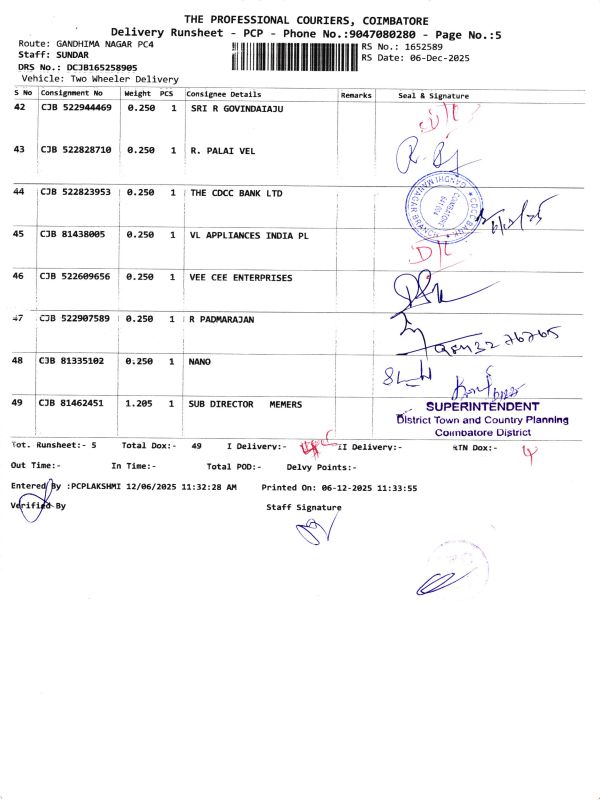 THE PROFESSIONAL COURIERS, COIMBATORE
Delivery Runsheet - PCP - Phone No.:9047080280 - Page No.:5
Route: GANDHIMA NAGAR PC4 RS No.: 1652589
Staff: SUNDAR RS Date: 06-Dec-2025
DRS No.: DCJB165258905
Vehicle: Two Wheeler Delivery
S No Consignment No Weight PCS Consignee Details Remarks Seal & Signature
42 CJB 522944469 0.250 1 SRI R GOVINDAIAJU
43 CJB 522828710 0.250 1 R. PALAI VEL
44 CJB 522823953 0.250 1 THE CDCC BANK LTD
CDCC BANK GANDHIMANAGAR BRANCH COIMBATORE
45 CJB 81438005 0.250 1 VL APPLIANCES INDIA PL
46 CJB 522609656 0.250 1 VEE CEE ENTERPRISES
47 CJB 522907589 0.250 1 R PADMARAJAN
48 CJB 81335102 0.250 1 NANO
49 CJB 81462451 1.205 1 SUB DIRECTOR MEMERS
SUPERINTENDENT
District Town and Country Planning
Coimbatore District
Tot. Runsheet:- 5 Total Dox:- 49 I Delivery:- II Delivery:- RTN Dox:- 4
Out Time:- In Time:- Total POD:- Delvy Points:-
Entered By :PCPLAKSHMI 12/06/2025 11:32:28 AM Printed On: 06-12-2025 11:33:55
Verified By Staff Signature